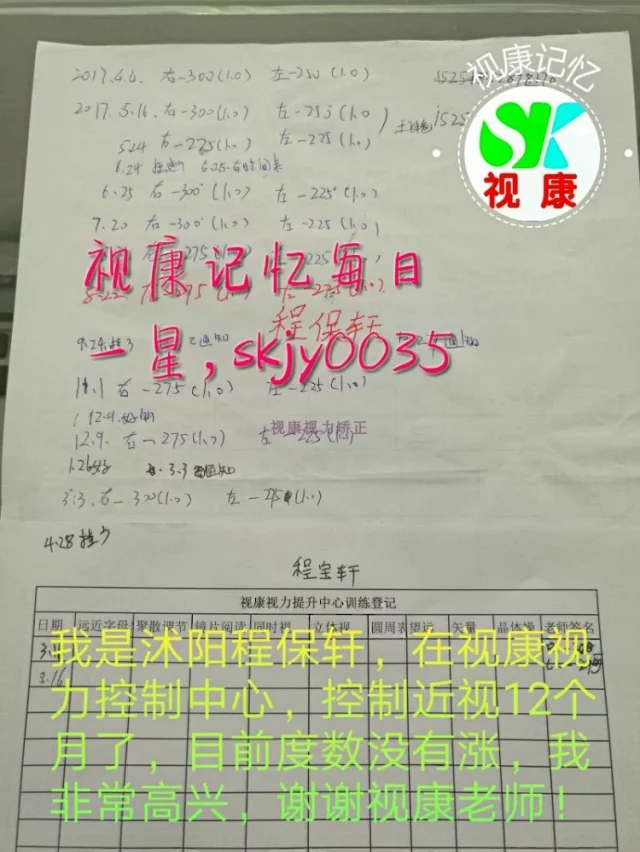 视康记忆
2017.4.6. 右-300(1.0) 左-250(1.0)
2017.5.16. 右-300(1.0) 左-25
视康
524 右-225(1.0) 左-225(1.0)
6.25 右-300°(1.0) 左-225°(1.0)
7.20 右-300(1.0) 左-225(1.0)
视康记忆每日
一星,skjy0035
程保轩
通知
11.1 右-275(1.0) 左-225(1.0)
视康视力矫正
12.9. 右-275(1.0) 左-225(1.0)
3.3 通知
3.3. 右-300(1.0) 左
4.28
程宝轩
视康视力提升中心训练登记
日期 远近字母 聚散调节 镜片阅读 同时视 立体视 圆周表 望远 矢量 晶体操 老师签名
3.16
我是沭阳程保轩，在视康视
力控制中心，控制近视12个
月了，目前度数没有涨，我
非常高兴，谢谢视康老师！